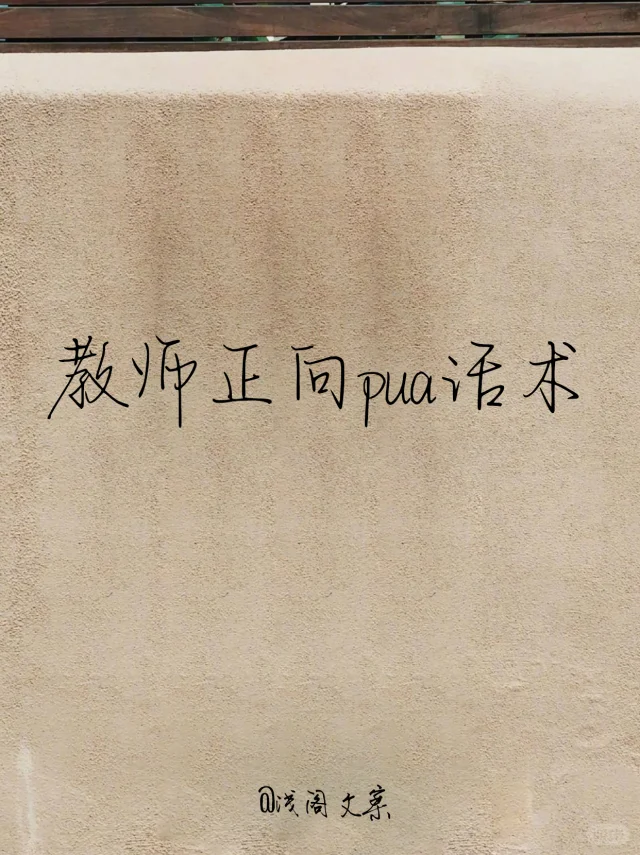 教师正向pua话术
@浅阁文案